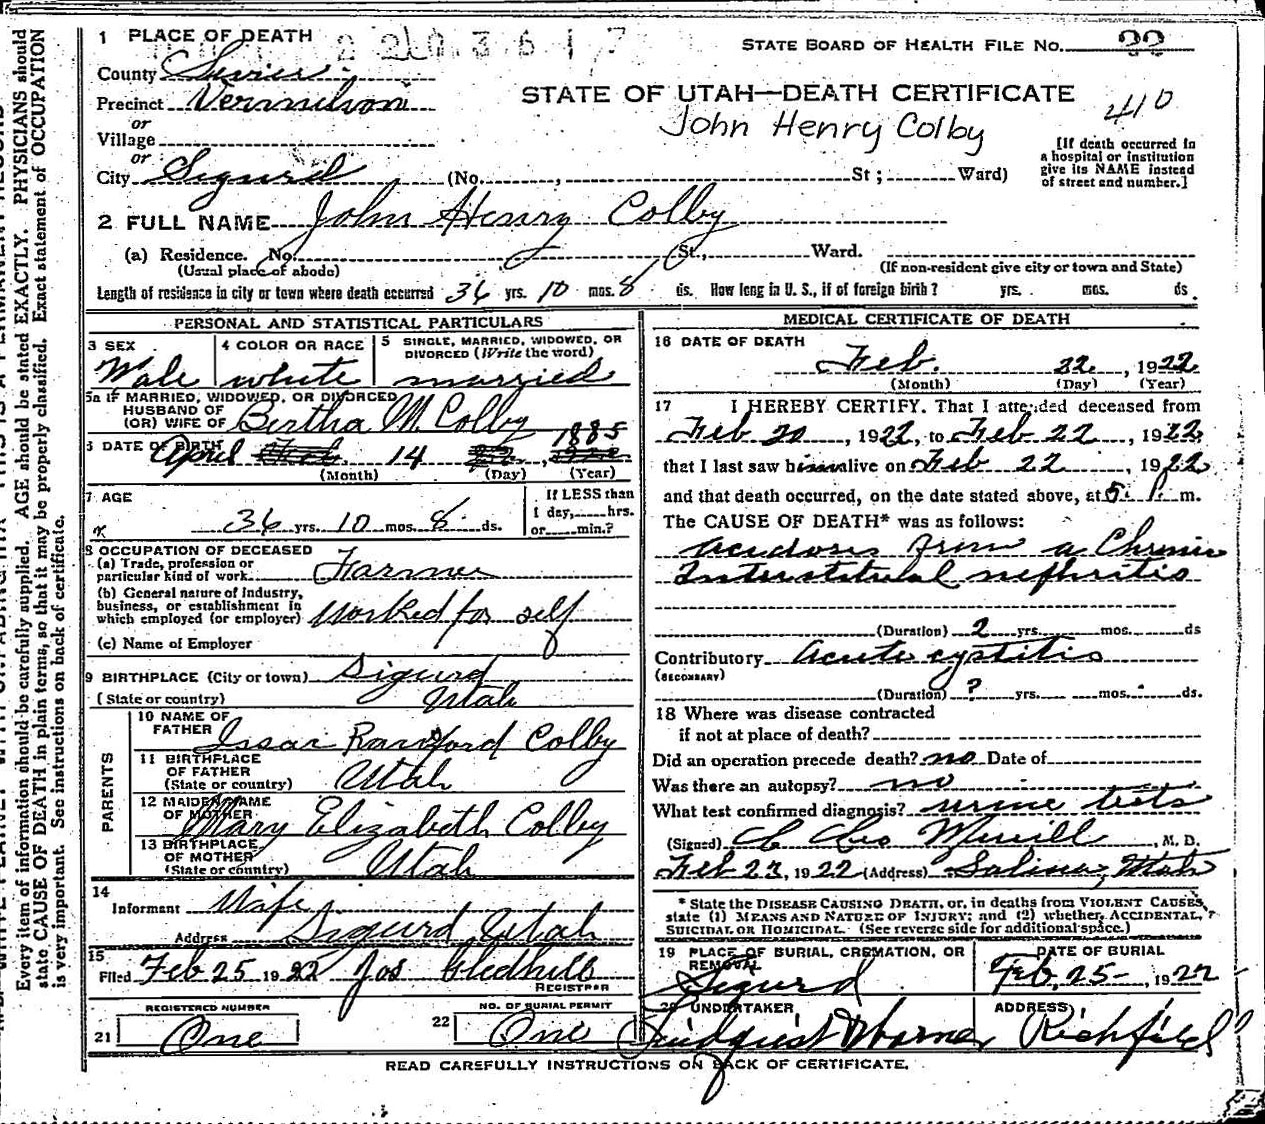 1 PLACE OF DEATH
2203617
STATE BOARD OF HEALTH FILE No. 22
County Sevier
STATE OF UTAH—DEATH CERTIFICATE
410
Precinct Vermilion
John Henry Colby
or
Village
or
[If death occurred in
a hospital or institution
give its NAME instead
of street and number.]
City Sigurd (No. , St ; Ward)
2 FULL NAME John Henry Colby
(a) Residence. No. St., Ward.
(Usual place of abode) (If non-resident give city or town and State)
Length of residence in city or town where death occurred 36 yrs. 10 mos. 8 ds. How long in U. S., if of foreign birth? yrs. mos. ds.
PERSONAL AND STATISTICAL PARTICULARS
3 SEX 4 COLOR OR RACE 5 SINGLE, MARRIED, WIDOWED, OR
DIVORCED (Write the word)
Male white married
5a IF MARRIED, WIDOWED, OR DIVORCED
HUSBAND OF
(OR) WIFE OF Bertha M Colby
6 DATE OF BIRTH April Feb. 14 22, 1885 1922
(Month) (Day) (Year)
7 AGE
36 yrs. 10 mos. 8 ds.
If LESS than
1 day, hrs.
or min.?
8 OCCUPATION OF DECEASED
(a) Trade, profession or
particular kind of work. Farmer
(b) General nature of Industry,
business, or establishment in
which employed (or employer) Worked for self
(c) Name of Employer
9 BIRTHPLACE (City or town) Sigurd
(State or country) Utah
PARENTS
10 NAME OF
FATHER Issac Colby
11 BIRTHPLACE
OF FATHER
(State or country) Utah
12 MAIDEN NAME
OF MOTHER
Mary Elizabeth Colby
13 BIRTHPLACE
OF MOTHER
(State or country) Utah
14
Informant Wife
Address Sigurd Utah
15
Filed Feb 25 1922 Jos Gledhill
REGISTRAR
REGISTERED NUMBER NO. OF BURIAL PERMIT
21 One 22 One
MEDICAL CERTIFICATE OF DEATH
16 DATE OF DEATH
Feb. 22, 1922
(Month) (Day) (Year)
17 I HEREBY CERTIFY. That I attended deceased from
Feb 20, 1922, to Feb 22, 1922
that I last saw him alive on Feb 22, 1922
and that death occurred, on the date stated above, at 5 P. m.
The CAUSE OF DEATH* was as follows:
Acidosis from a Chronic
Interstitial nephritis
(Duration) 2 yrs. mos. ds
Contributory Acute cystitis
(SECONDARY)
(Duration) ? yrs. mos. ds.
18 Where was disease contracted
if not at place of death?
Did an operation precede death? no Date of
Was there an autopsy? no
What test confirmed diagnosis? urine tests
(Signed) Leo Merrill, M. D.
Feb 23, 1922 (Address) Salina, Utah
* State the DISEASE CAUSING DEATH, or, in deaths from VIOLENT CAUSES,
state (1) MEANS AND NATURE OF INJURY; and (2) whether ACCIDENTAL,
SUICIDAL OR HOMICIDAL. (See reverse side for additional space.)
19 PLACE OF BURIAL, CREMATION, OR
REMOVAL
DATE OF BURIAL
Sigurd Feb. 25, 1922
20 UNDERTAKER ADDRESS
Richfield
READ CAREFULLY INSTRUCTIONS ON BACK OF CERTIFICATE.
Every item of information should be carefully supplied. AGE should be stated EXACTLY. PHYSICIANS should
state CAUSE OF DEATH in plain terms, so that it may be properly classified. Exact statement of OCCUPATION
is very important. See instructions on back of certificate.